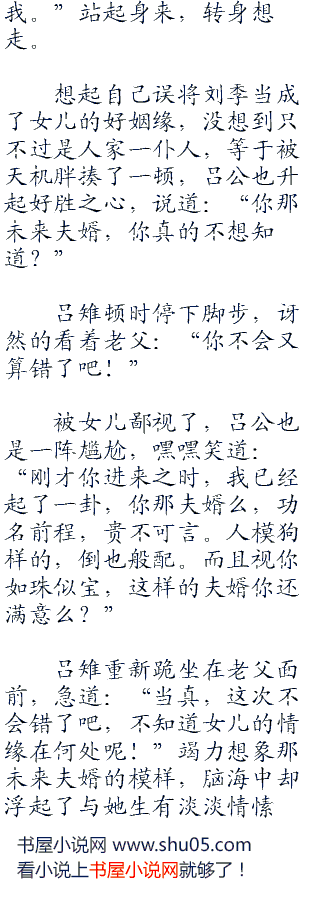 我。”站起身来，转身想
走。
想起自己误将刘季当成
了女儿的好姻缘，没想到只
不过是人家一仆人，等于被
天机胖揍了一顿，吕公也升
起好胜之心，说道：“你那
未来夫婿，你真的不想知
道？”
吕雉顿时停下脚步，讶
然的看着老父：“你不会又
算错了吧！”
被女儿鄙视了，吕公也
是一阵尴尬，嘿嘿笑道：
“刚才你进来之时，我已经
起了一卦，你那夫婿么，功
名前程，贵不可言。人模狗
样的，倒也般配。而且视你
如珠似宝，这样的夫婿你还
满意么？”
吕雉重新跪坐在老父面
前，急道：“当真，这次不
会错了吧，不知道女儿的情
缘在何处呢！”竭力想象那
未来夫婿的模样，脑海中却
浮起了与她生有淡淡情愫
书屋小说网 www.shu05.com
看小说上书屋小说网就够了！